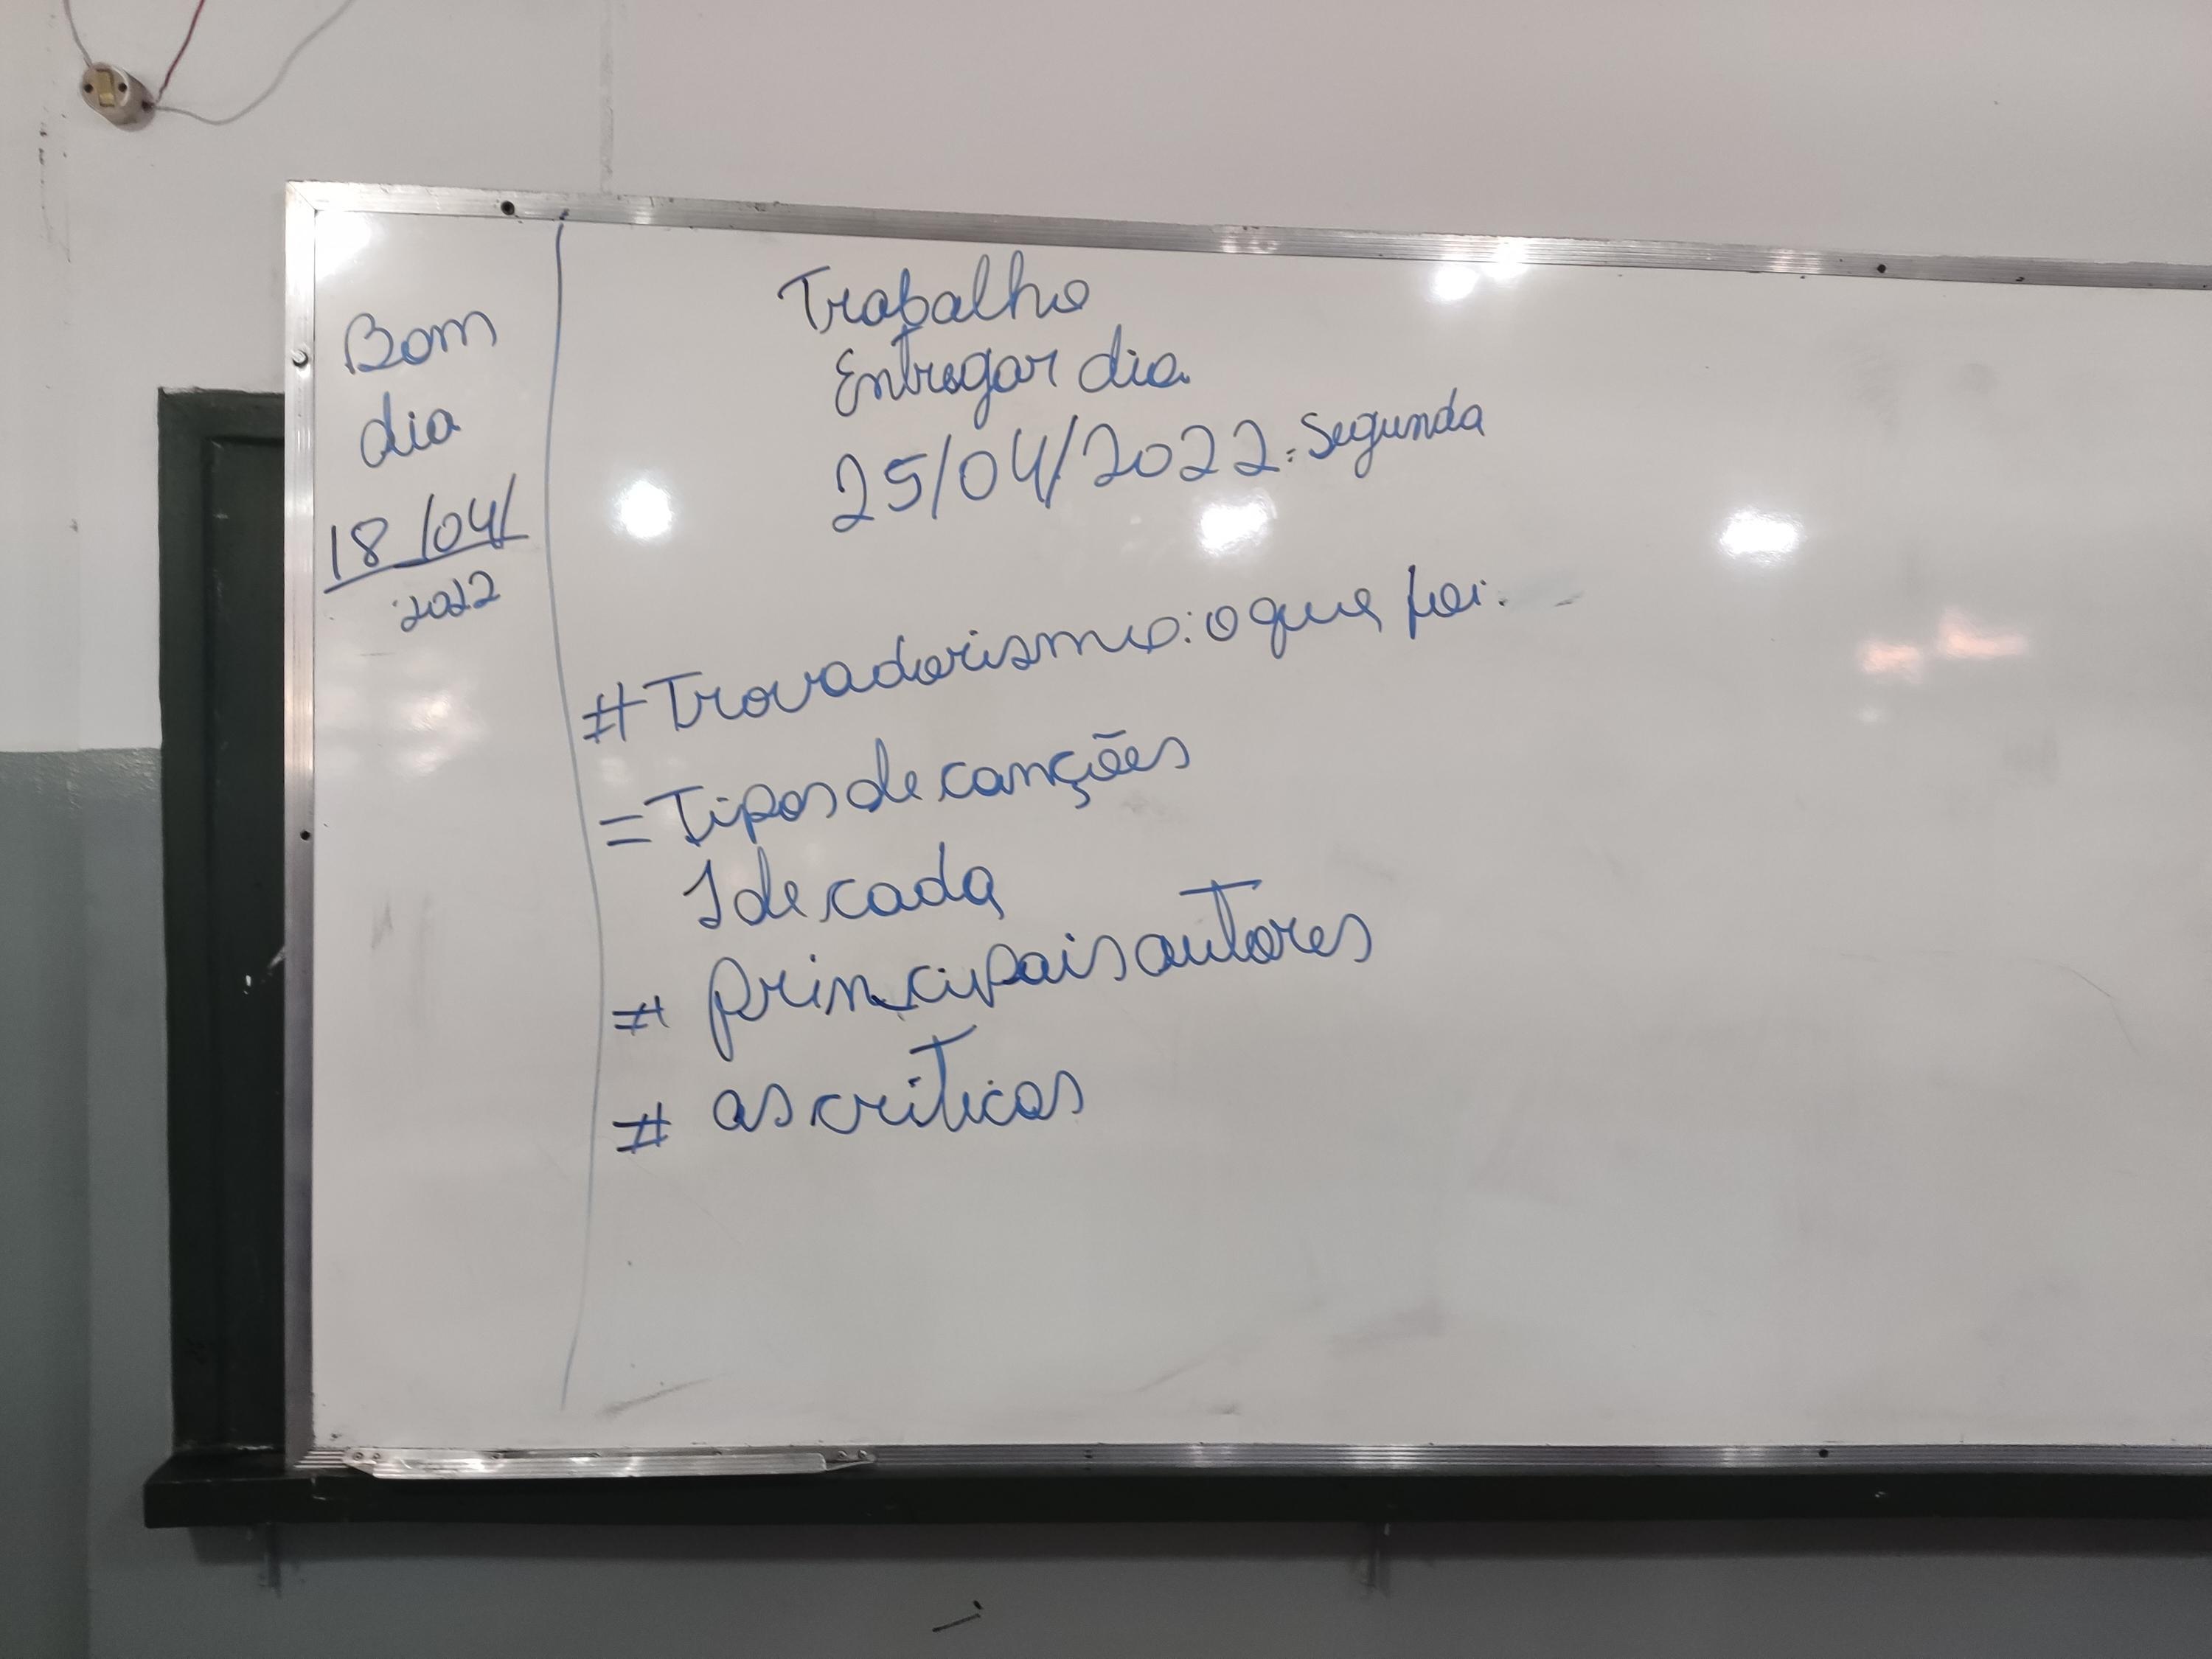 Bom
dia
18/04/
2022
Trabalho
Entregar dia
25/04/2022. Segunda
# Trovadorismo: o que foi.
= Tipos de canções
1 de cada
# principais autores
# as criticas